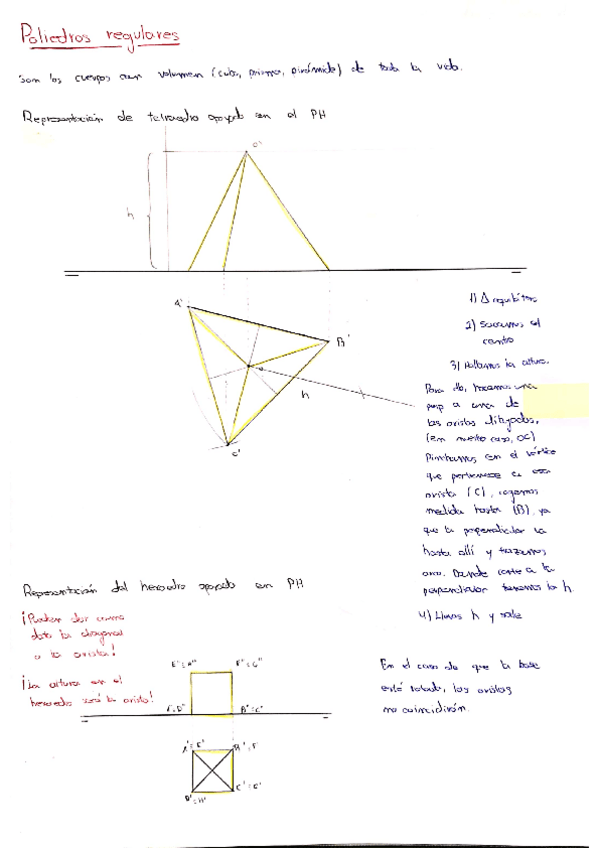 Poliedros regulares
Son los cuerpos con volumen (cubo, prisma, pirámide) de toda la vida.
Representación de tetraedro apoyado en el PH
O"
h
A'
B'
C'
h
1) Δ equilátero
2) Sacamos el
centro
3) Hallamos la altura.
Para ello, hacemos una
perp a una de
las aristas dibujadas,
(en nuestro caso, OC)
Pinchamos en el vértice
que pertenece a esa
arista (C), cogemos
medida hasta (B), ya
que la perpendicular va
hasta allí y trazamos
arco. Donde corte a la
perpendicular tenemos la h.
4) Llevas h y sale
Representación del hexaedro apoyado en PH
¡Pueden dar como
dato la diagonal
o la arista!
¡La altura en el
hexaedro será la arista!
E"=A"
F"=G"
B"=C"
A'=E'
B'=F'
C'=G'
D'=H'
En el caso de que la base
esté rotada, las aristas
no coincidirán.